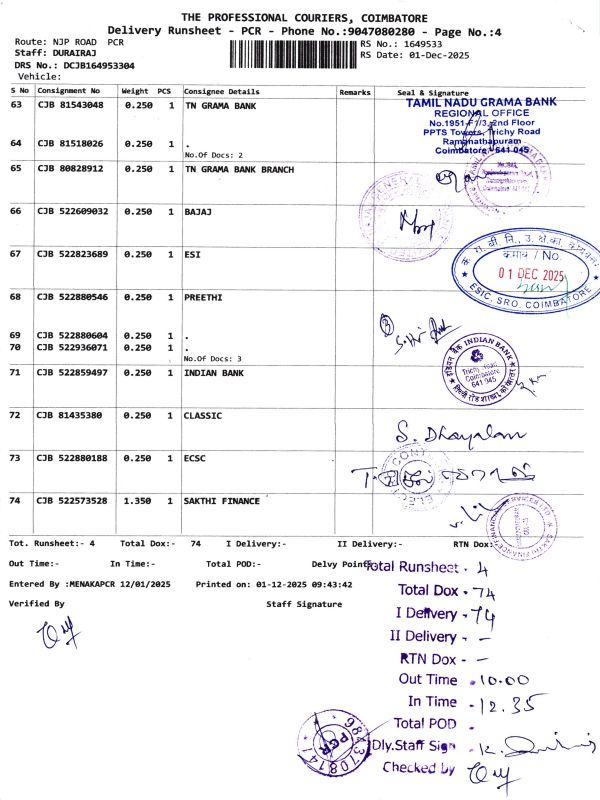 THE PROFESSIONAL COURIERS, COIMBATORE
Delivery Runsheet - PCR - Phone No.:9047080280 - Page No.:4
Route: NJP ROAD PCR
Staff: DURAIRAJ
DRS No.: DCJB164953304
Vehicle:
RS No.: 1649533
RS Date: 01-Dec-2025
S No Consignment No Weight PCS Consignee Details Remarks Seal & Signature
63 CJB 81543048 0.250 1 TN GRAMA BANK
TAMIL NADU GRAMA BANK
REGIONAL OFFICE
No.1951-F1/3, 2nd Floor
PPTS Towers, Trichy Road
Ramanathapuram
Coimbatore - 641 045
64 CJB 81518026 0.250 1 .
No.Of Docs: 2
65 CJB 80828912 0.250 1 TN GRAMA BANK BRANCH
66 CJB 522609032 0.250 1 BAJAJ
67 CJB 522823689 0.250 1 ESI
क्रमांक / No.
01 DEC 2025
ESIC, SRO, COIMBATORE
68 CJB 522880546 0.250 1 PREETHI
69 CJB 522880604 0.250 1 .
70 CJB 522936071 0.250 1 .
No.Of Docs: 3
3
71 CJB 522859497 0.250 1 INDIAN BANK
इंडियन बैंक INDIAN BANK
Trichy Road
Coimbatore
641 045
72 CJB 81435380 0.250 1 CLASSIC
S. Dhayalan
73 CJB 522880188 0.250 1 ECSC
74 CJB 522573528 1.350 1 SAKTHI FINANCE
Tot. Runsheet:- 4 Total Dox:- 74 I Delivery:- II Delivery:- RTN Dox:
Out Time:- In Time:- Total POD:- Delvy Points
Entered By :MENAKAPCR 12/01/2025 Printed on: 01-12-2025 09:43:42
Verified By Staff Signature
Total Runsheet - 4
Total Dox - 74
I Delivery - 74
II Delivery - -
RTN Dox - -
Out Time - 10.00
In Time - 12.35
Total POD -
Dly.Staff Sign -
Checked by
PCR
9843708141